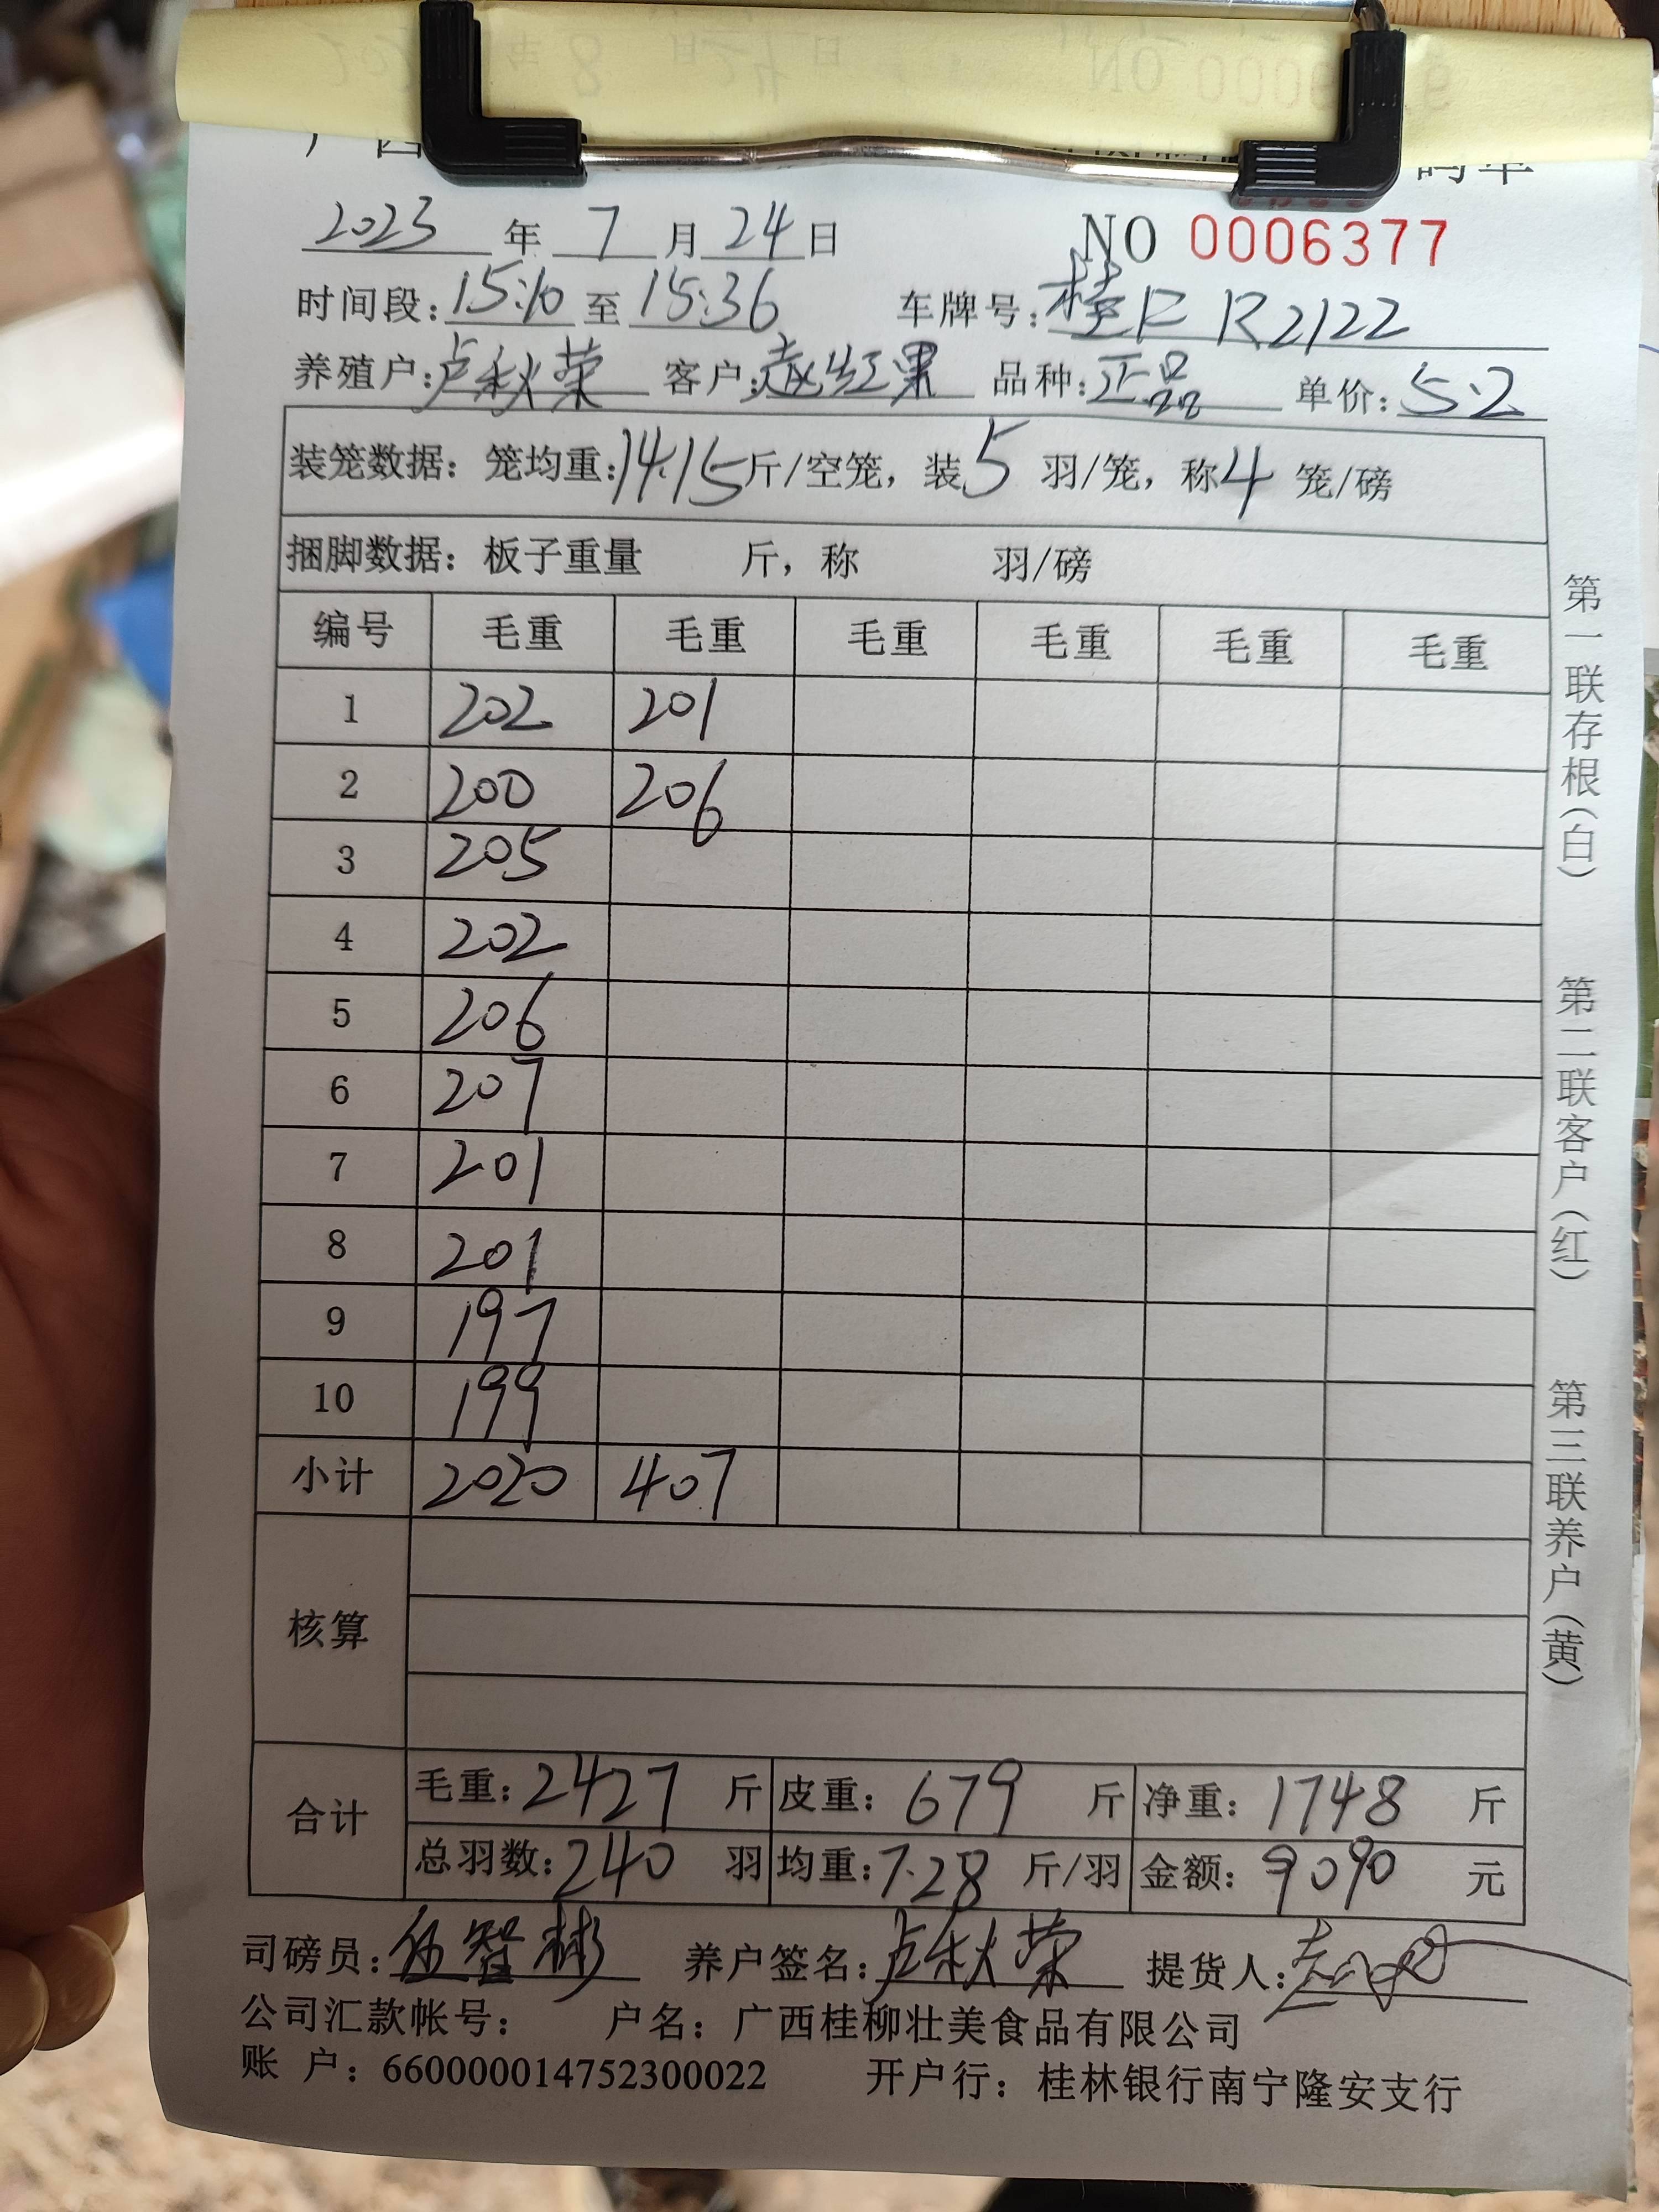 2023 年 7 月 24 日 NO 0006377
时间段: 15:10 至 15:36 车牌号: 桂F R2122
养殖户: 卢秋荣 客户: 赵红果 品种: 正品 单价: 5.2
装笼数据: 笼均重: 14.15 斤/空笼, 装 5 羽/笼, 称 4 笼/磅
捆脚数据: 板子重量 斤, 称 羽/磅
编号 毛重 毛重 毛重 毛重 毛重 毛重
1 202 201
2 200 206
3 205
4 202
5 206
6 207
7 201
8 201
9 197
10 199
小计 2020 407
核算
合计
毛重: 2427 斤 皮重: 679 斤 净重: 1748 斤
总羽数: 240 羽 均重: 7.28 斤/羽 金额: 9090 元
司磅员: 伍智彬 养户签名: 卢秋荣 提货人:
公司汇款帐号: 户名: 广西桂柳壮美食品有限公司
账 户: 660000014752300022 开户行: 桂林银行南宁隆安支行
第一联存根(白) 第二联客户(红) 第三联养户(黄)